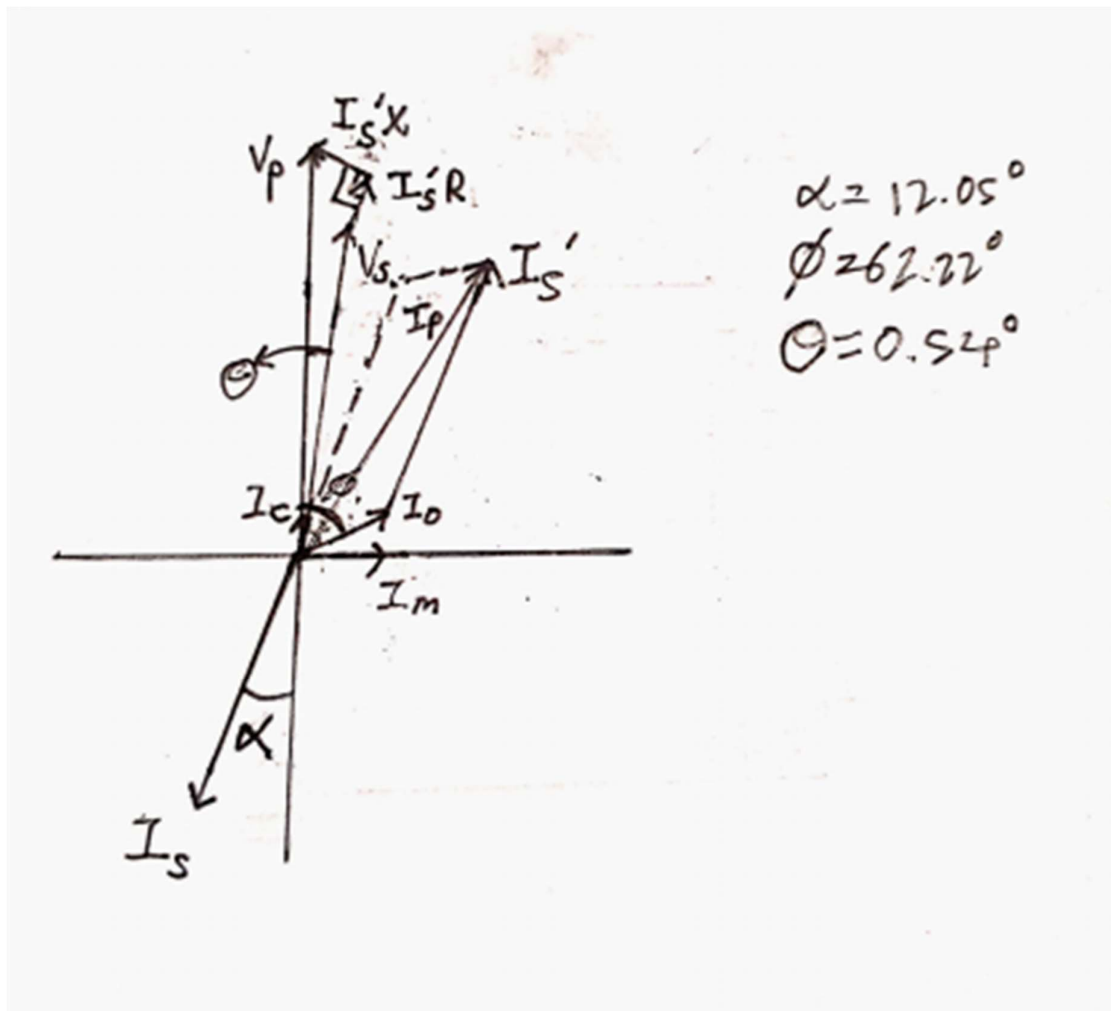 Is'X
Vp
Is'R
Vs
Is'
Ip
Θ
Ic
Io
Im
α
Is
α = 12.05°
ϕ = 62.22°
Θ = 0.54°